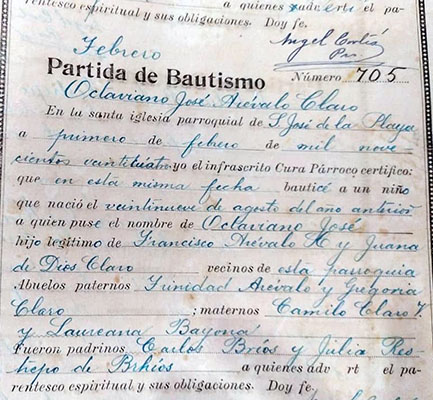 a quienes advertí el pa-
rentesco espiritual y sus obligaciones. Doy fe.
Febrero
Partida de Bautismo
Número 705
Octaviano José Arévalo Claro
En la santa iglesia parroquial de S. José de la Playa
a primero de febro de mil nove
cientos veinticuatro yo el infrascrito Cura Párroco certifico:
que en esta misma fecha bauticé a un niño
que nació el veintinueve de agosto del año anterior
a quien puse el nombre de Octaviano José
hijo legítimo de Francisco Arévalo H y Juana
de Dios Claro vecinos de esta parroquia
Abuelos paternos Trinidad Arévalo y Gregoria
Claro ; maternos Camilo Claro
y Laureana Bayona
Fueron padrinos Carlos Bríos y Julia Res-
trepo de a quienes adv rt el pa-
rentesco espiritual y sus obligaciones. Doy fe.